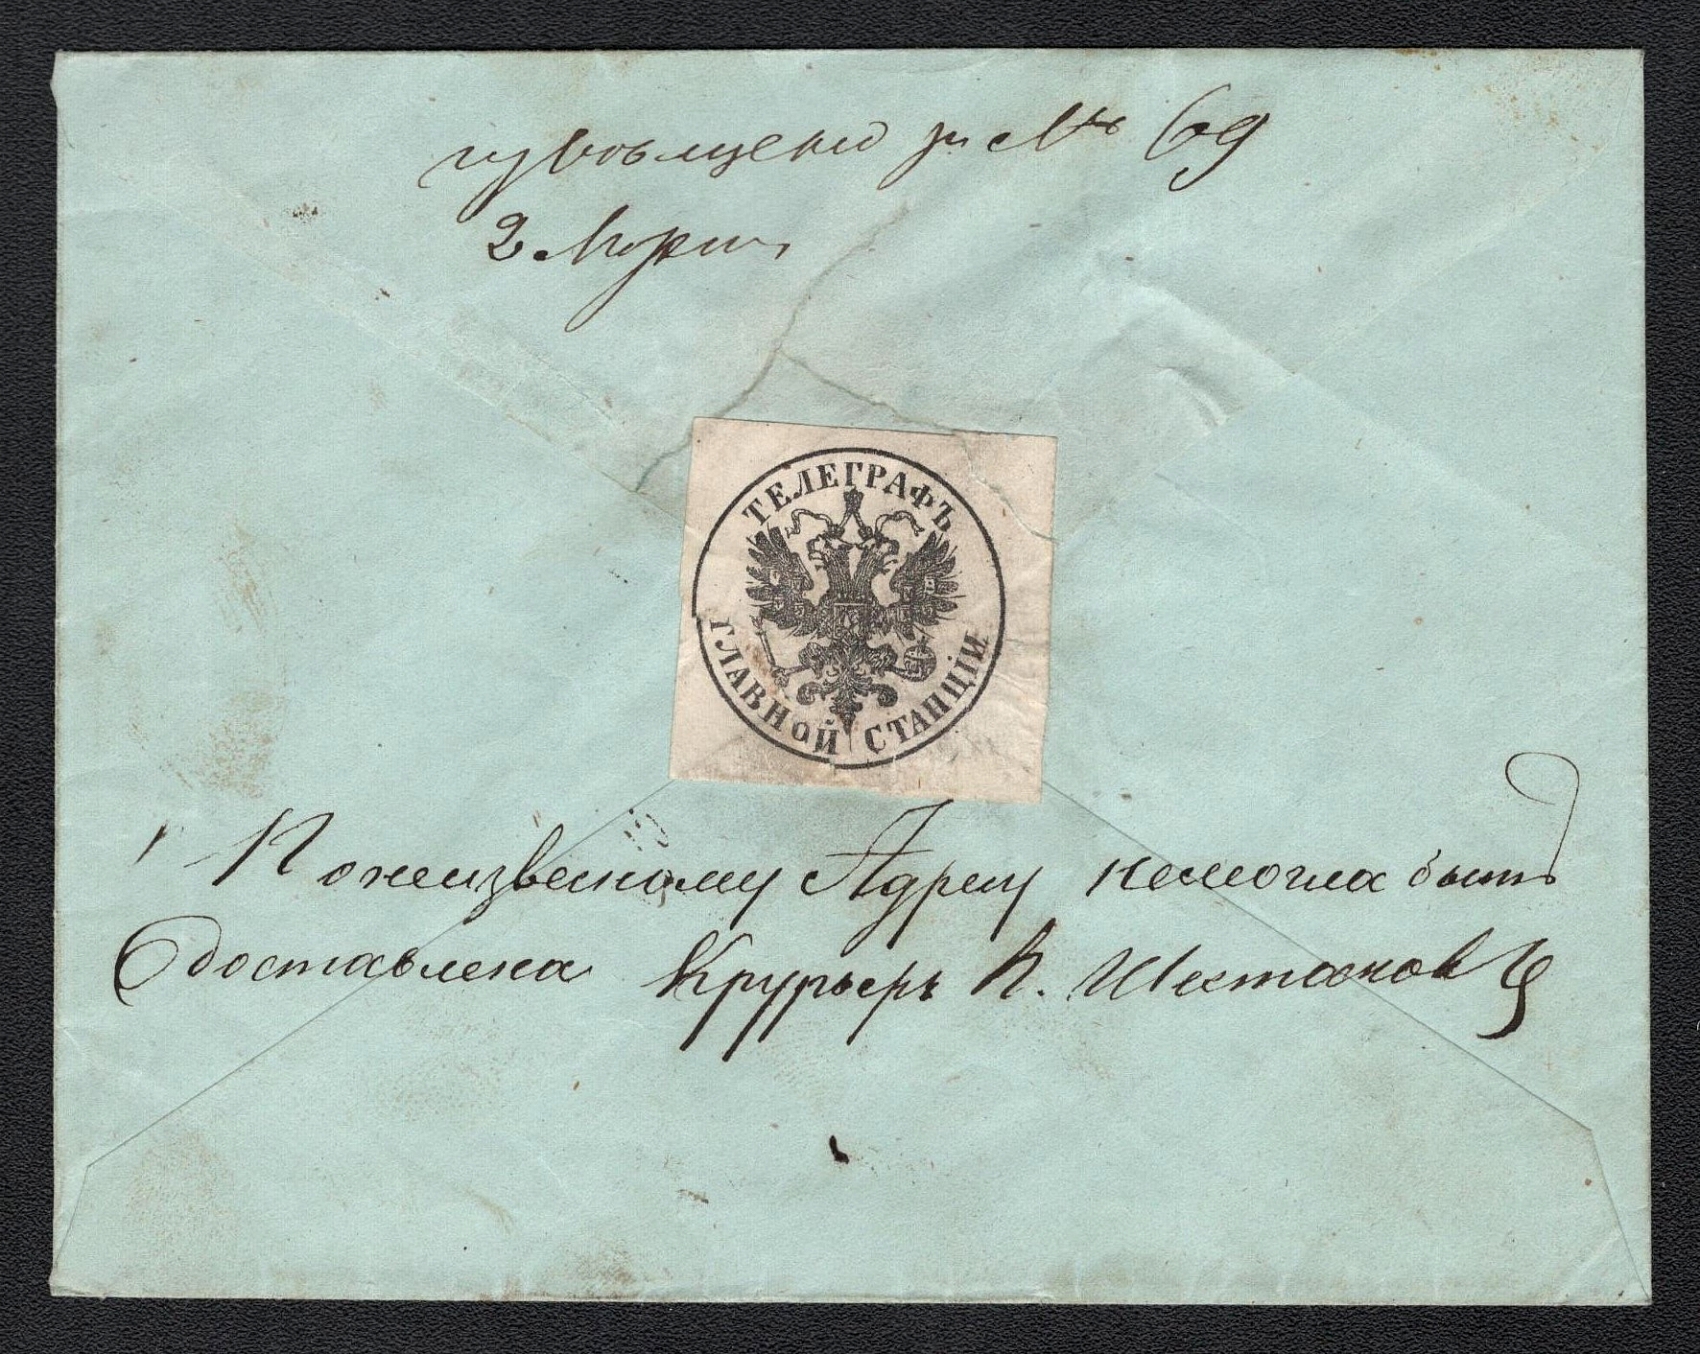 извѣщено за № 69
2 Марта
ТЕЛЕГРАФЪ
ГЛАВНОЙ СТАНЦІИ
По неизвесному Адресу немогла быть
доставлена Крурьеръ К. Шестаковъ